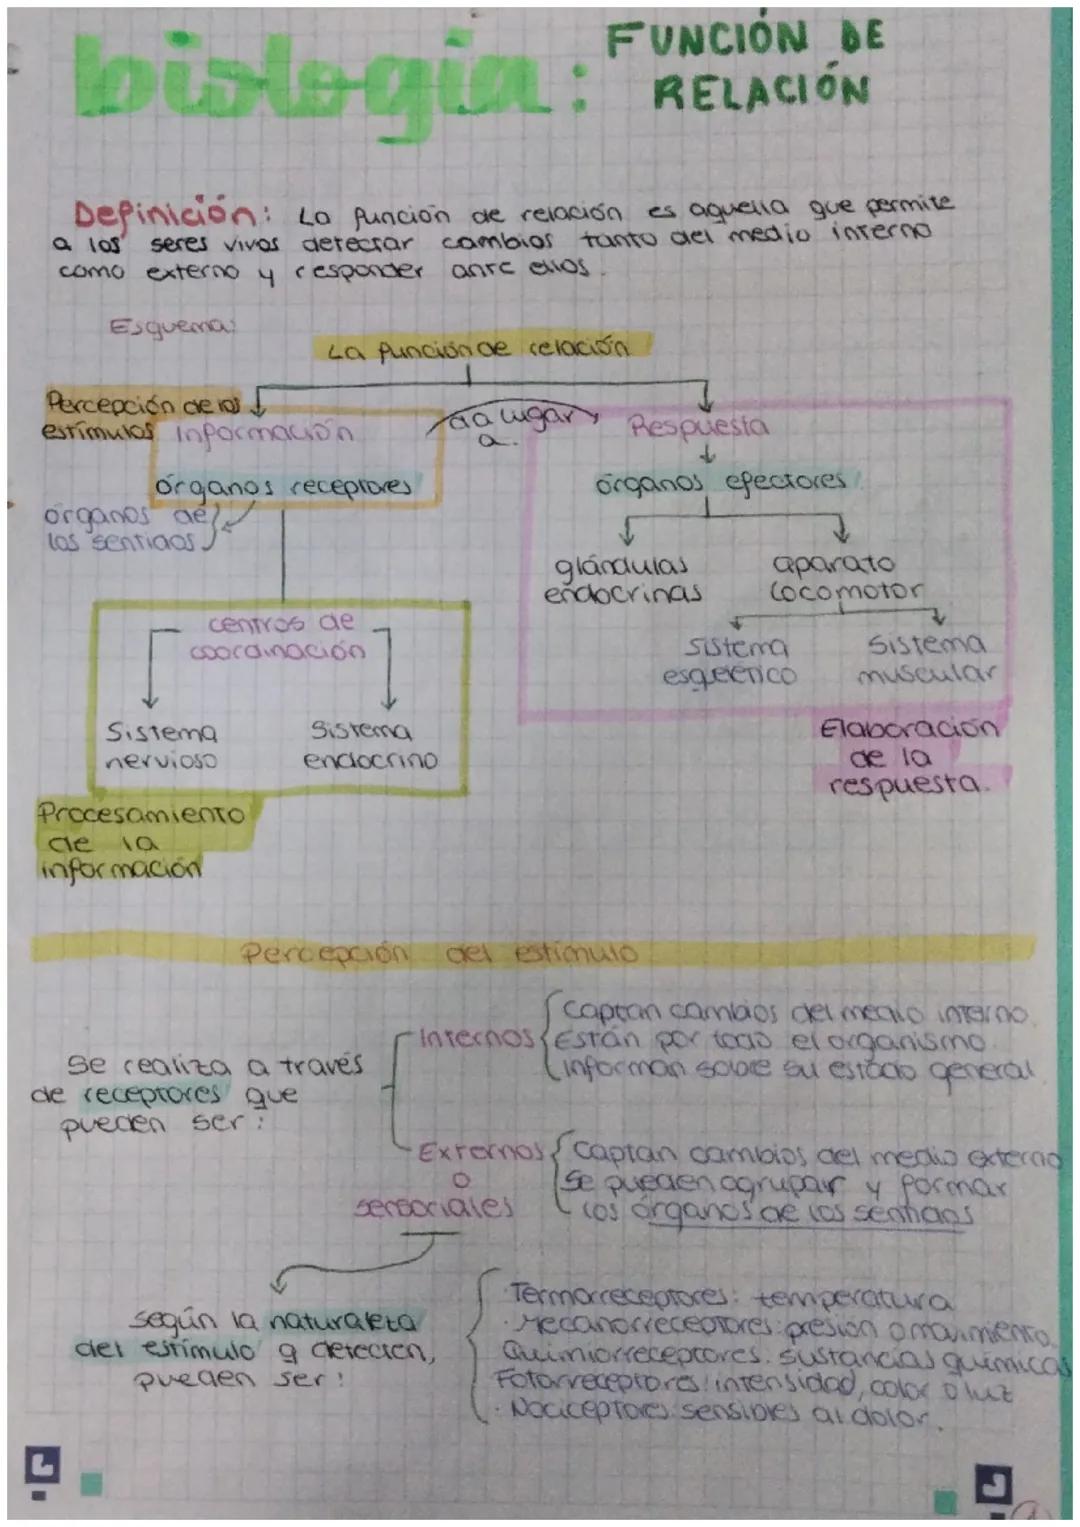 biología: FUNCIÓN DE
RELACIÓN
Definición: La función de relación es aquella que permite
a los seres vivos detectar cambios tanto del medio interno
como externo y responder ante ellos.
Esquema:
La función de relación
Percepción de los
estímulos
Información
da lugar
a.
Respuesta
órganos receptores
órganos de
los sentidos
órganos efectores
glándulas
endocrinas
aparato
locomotor
sistema
esquelético
sistema
muscular
Elaboración
de la
respuesta.
centros de
coordinación
Sistema
nervioso
Sistema
endocrino
Procesamiento
de la
información
Percepción del estímulo
Se realiza a través
de receptores que
pueden ser:
Internos
Captan cambios del medio interno.
Están por todo el organismo.
Informan sobre su estado general
Externos
o
sensoriales
Captan cambios del medio externo
Se pueden agrupar y formar
los órganos de los sentidos
según la naturaleza
del estímulo q detecten,
pueden ser:
·Termorreceptores: temperatura
·Mecanorreceptores: presión o movimiento.
Quimiorreceptores. sustancias químicas
Fotorreceptores: intensidad, color o luz
·Nociceptores: sensibles al dolor.